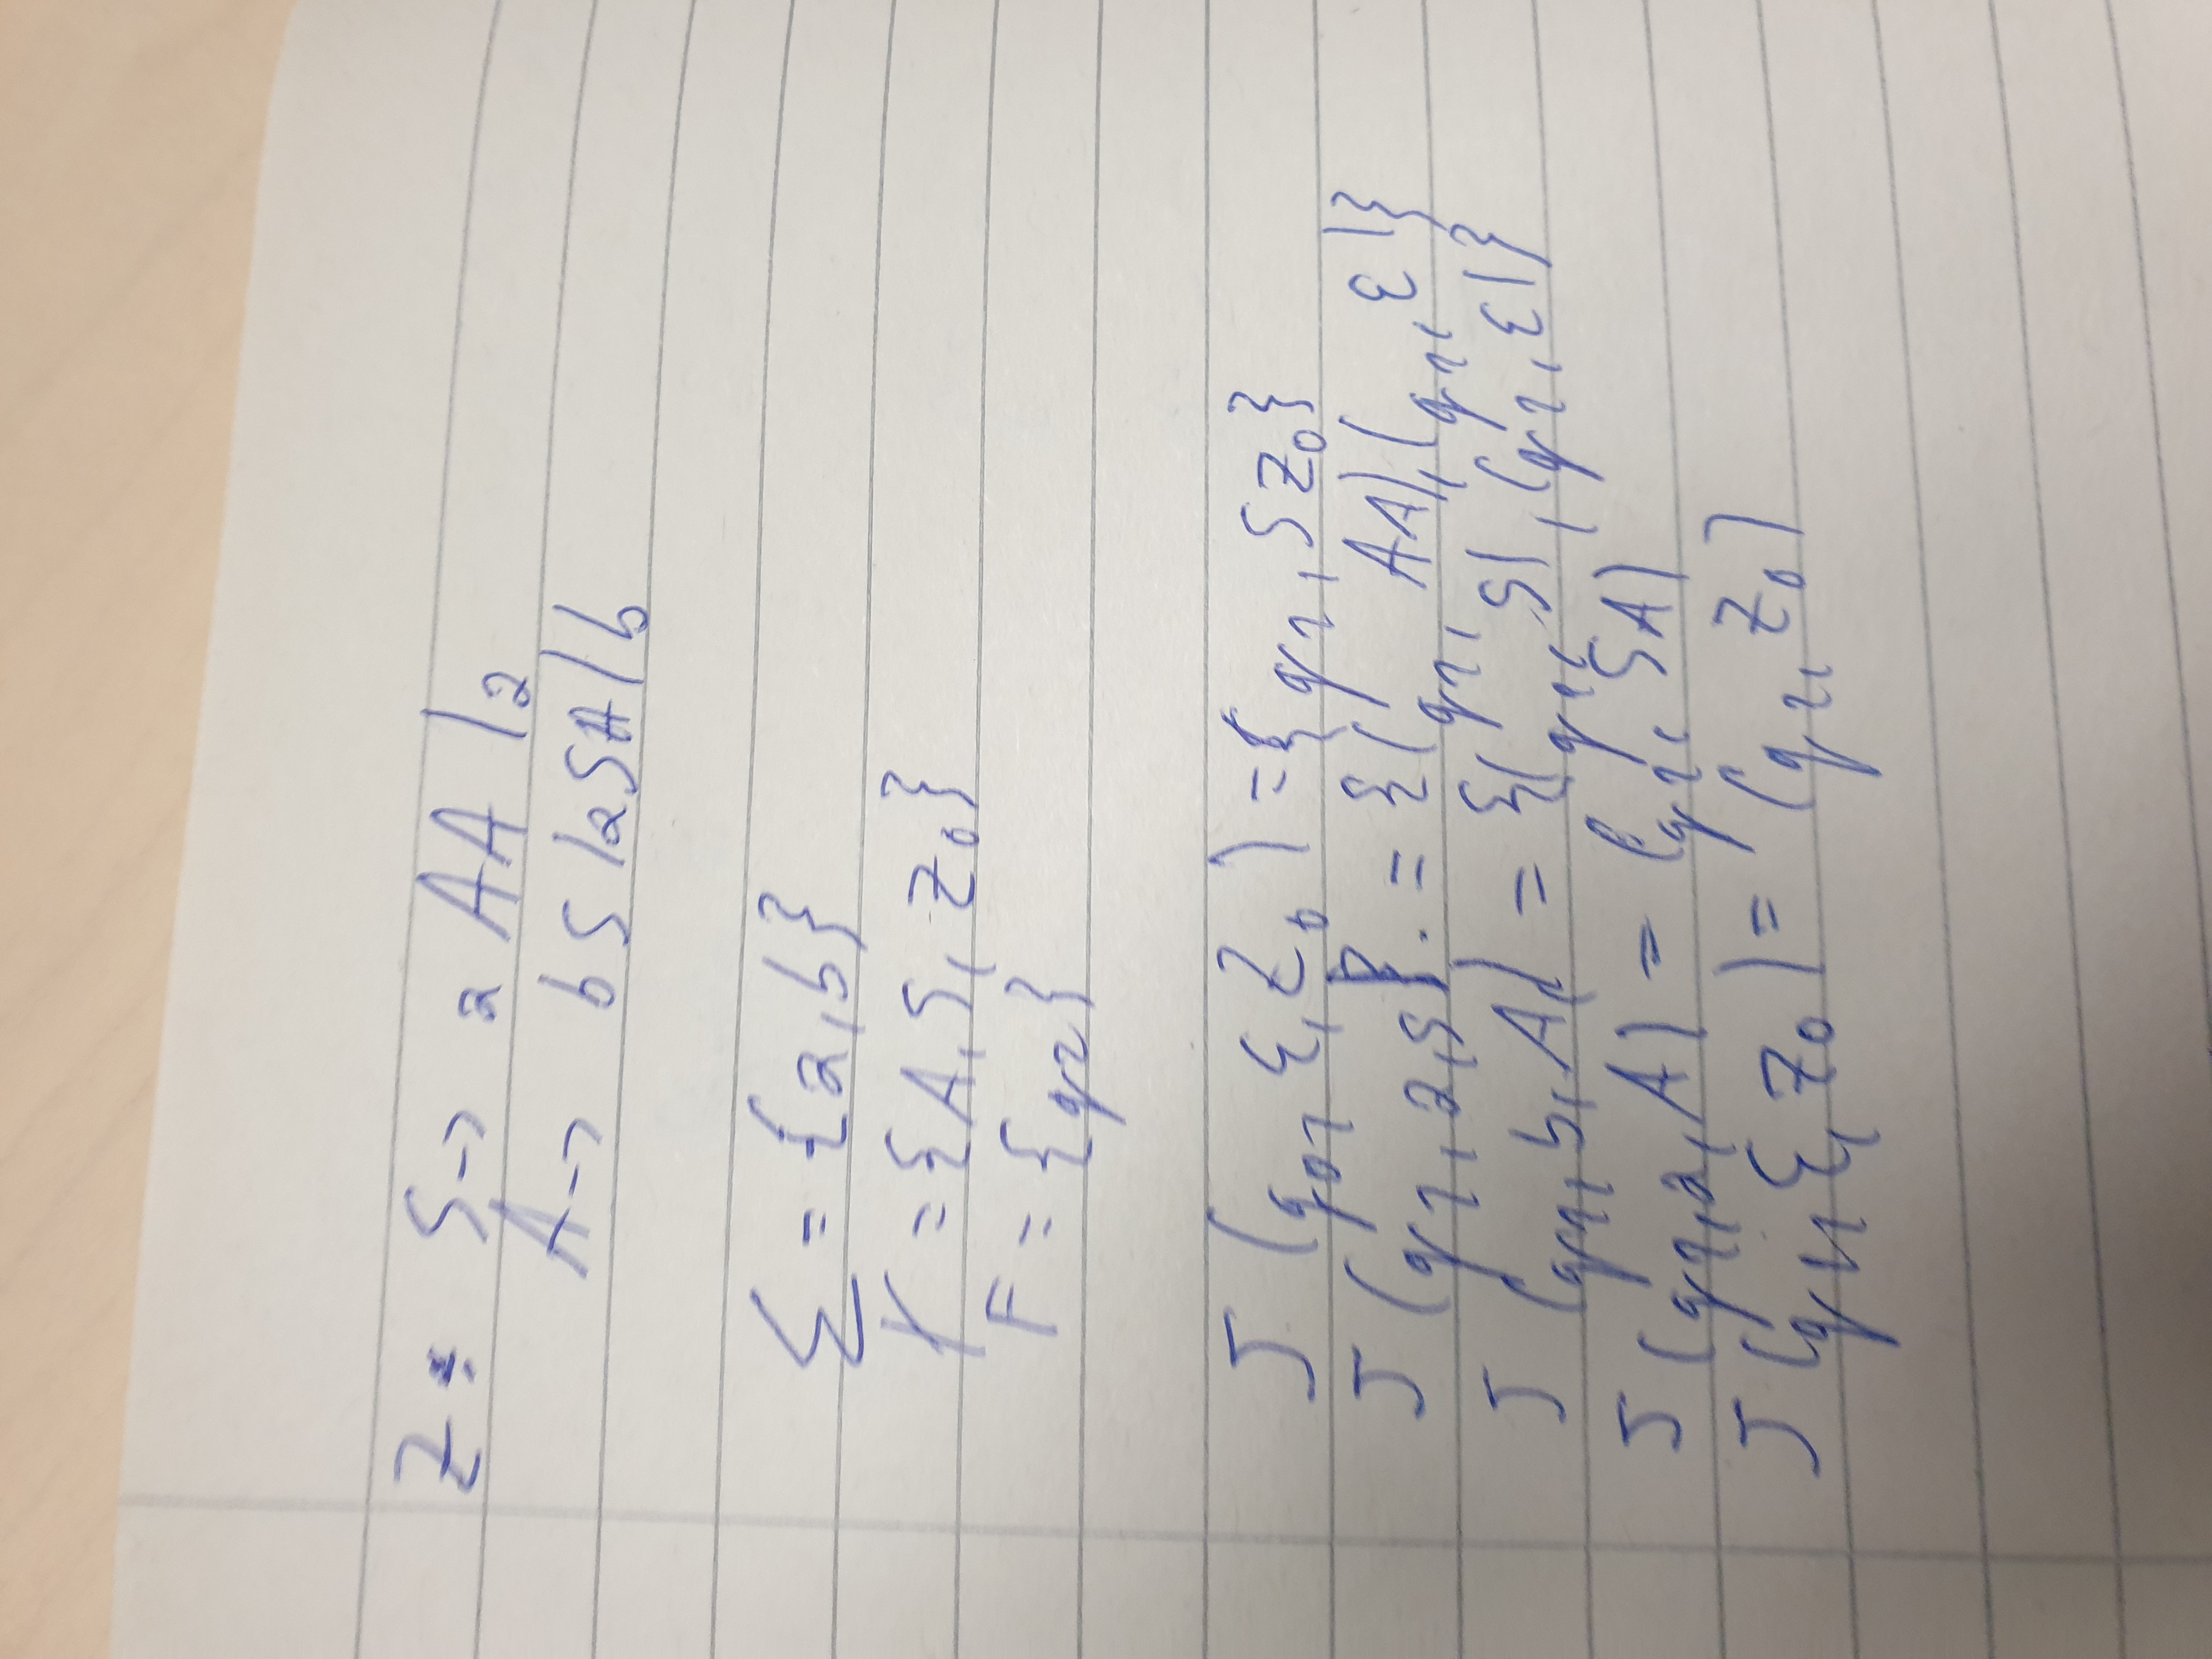 Z: S -> a AA | a
A -> bS | aSA | b
Σ = {a, b}
Γ = {A, S, Z₀}
F = {q2}
δ (q0, ε, Z₀) = {q1, SZ₀}
δ (q1, a, S). = {(q1, AA), (q1, ε)}
δ (q1, b, A) = {(q1, S), (q1, ε)}
δ (q1, a, A) = (q1, SA)
δ (q1, ε, Z₀) = (q2, Z₀)